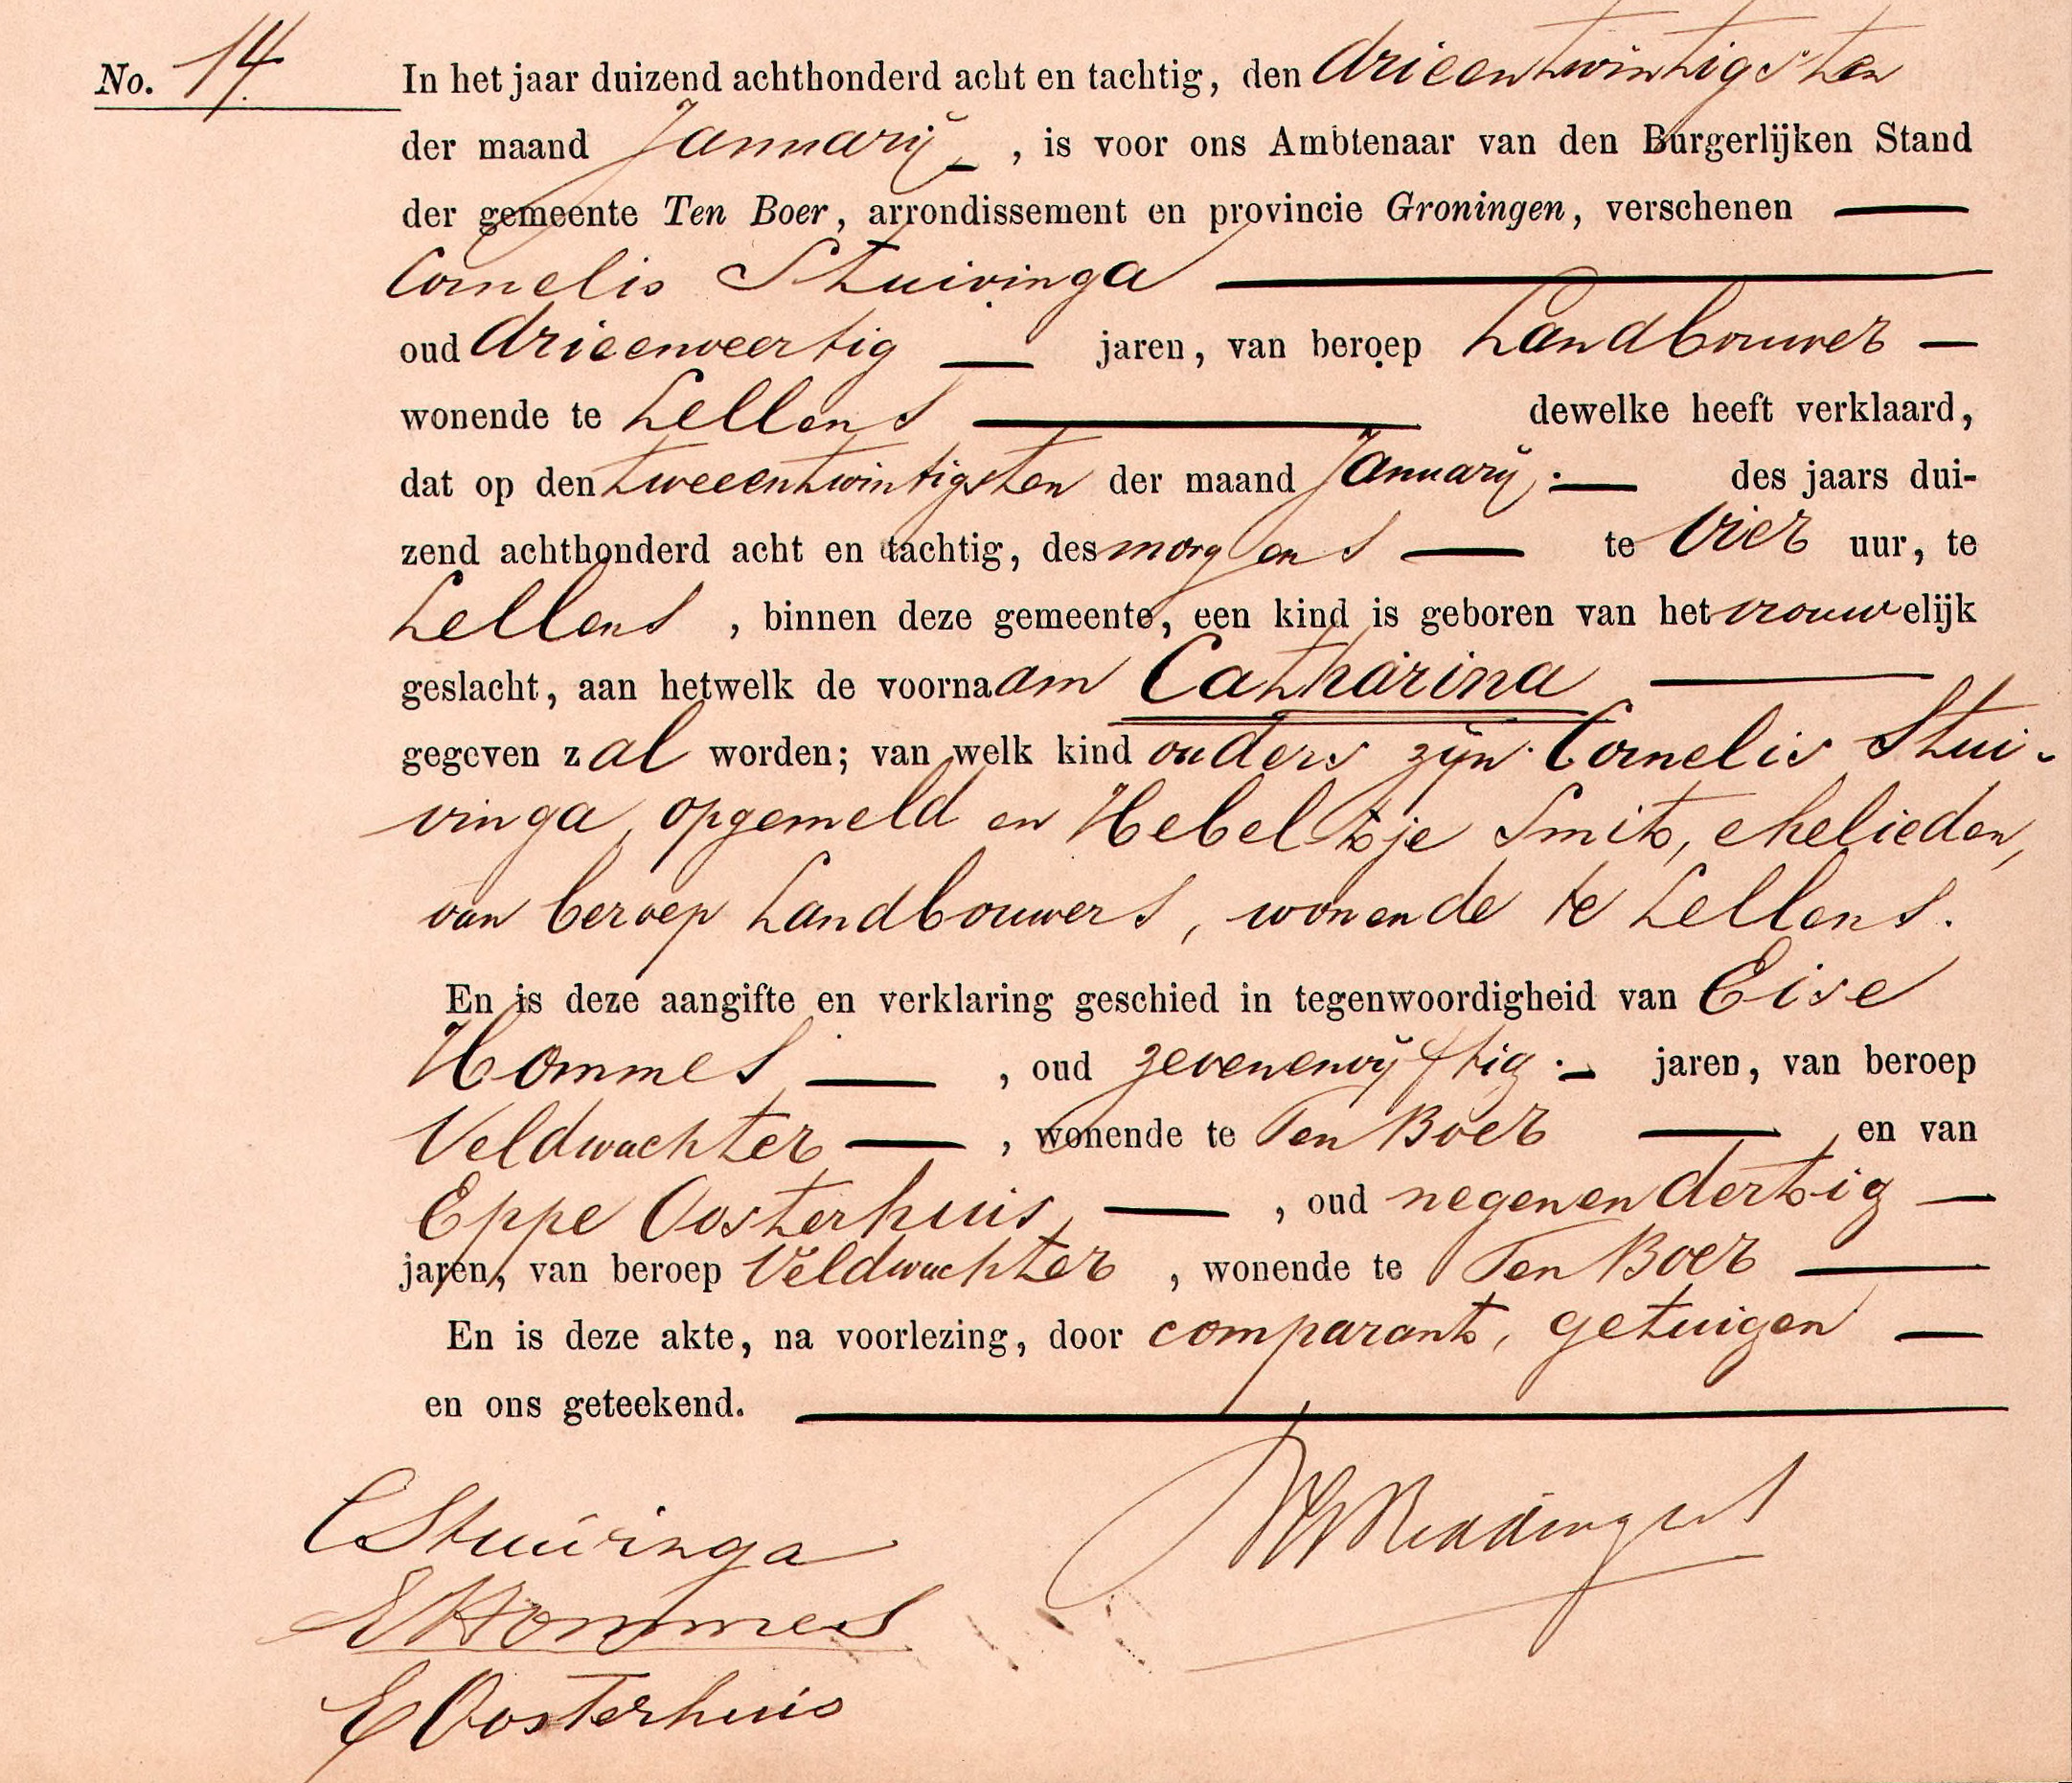 No. 14 In het jaar duizend achthonderd acht en tachtig, den drieentwintigsten
der maand Januarij, is voor ons Ambtenaar van den Burgerlijken Stand
der gemeente Ten Boer, arrondissement en provincie Groningen, verschenen
Cornelis Stuivinga
oud drieenveertig jaren, van beroep Landbouwer
wonende te Lellens dewelke heeft verklaard,
dat op den tweeentwintigsten der maand Januarij des jaars dui-
zend achthonderd acht en tachtig, des morgens te vier uur, te
Lellens, binnen deze gemeente, een kind is geboren van het vrouwelijk
geslacht, aan hetwelk de voornaam Catharina
gegeven zal worden; van welk kind ouders zijn Cornelis Stui-
vinga, opgemeld en Hebeltje Smit, ehelieden,
van beroep Landbouwers, wonende te Lellens.
En is deze aangifte en verklaring geschied in tegenwoordigheid van Eise
Hommes, oud zevenenvijftig jaren, van beroep
Veldwachter, wonende te Ten Boer en van
Eppe Oosterhuis, oud negenendertig
jaren, van beroep Veldwachter, wonende te Ten Boer
En is deze akte, na voorlezing, door comparant, getuigen
en ons geteekend.
CStuivinga
EHommes
EOosterhuis